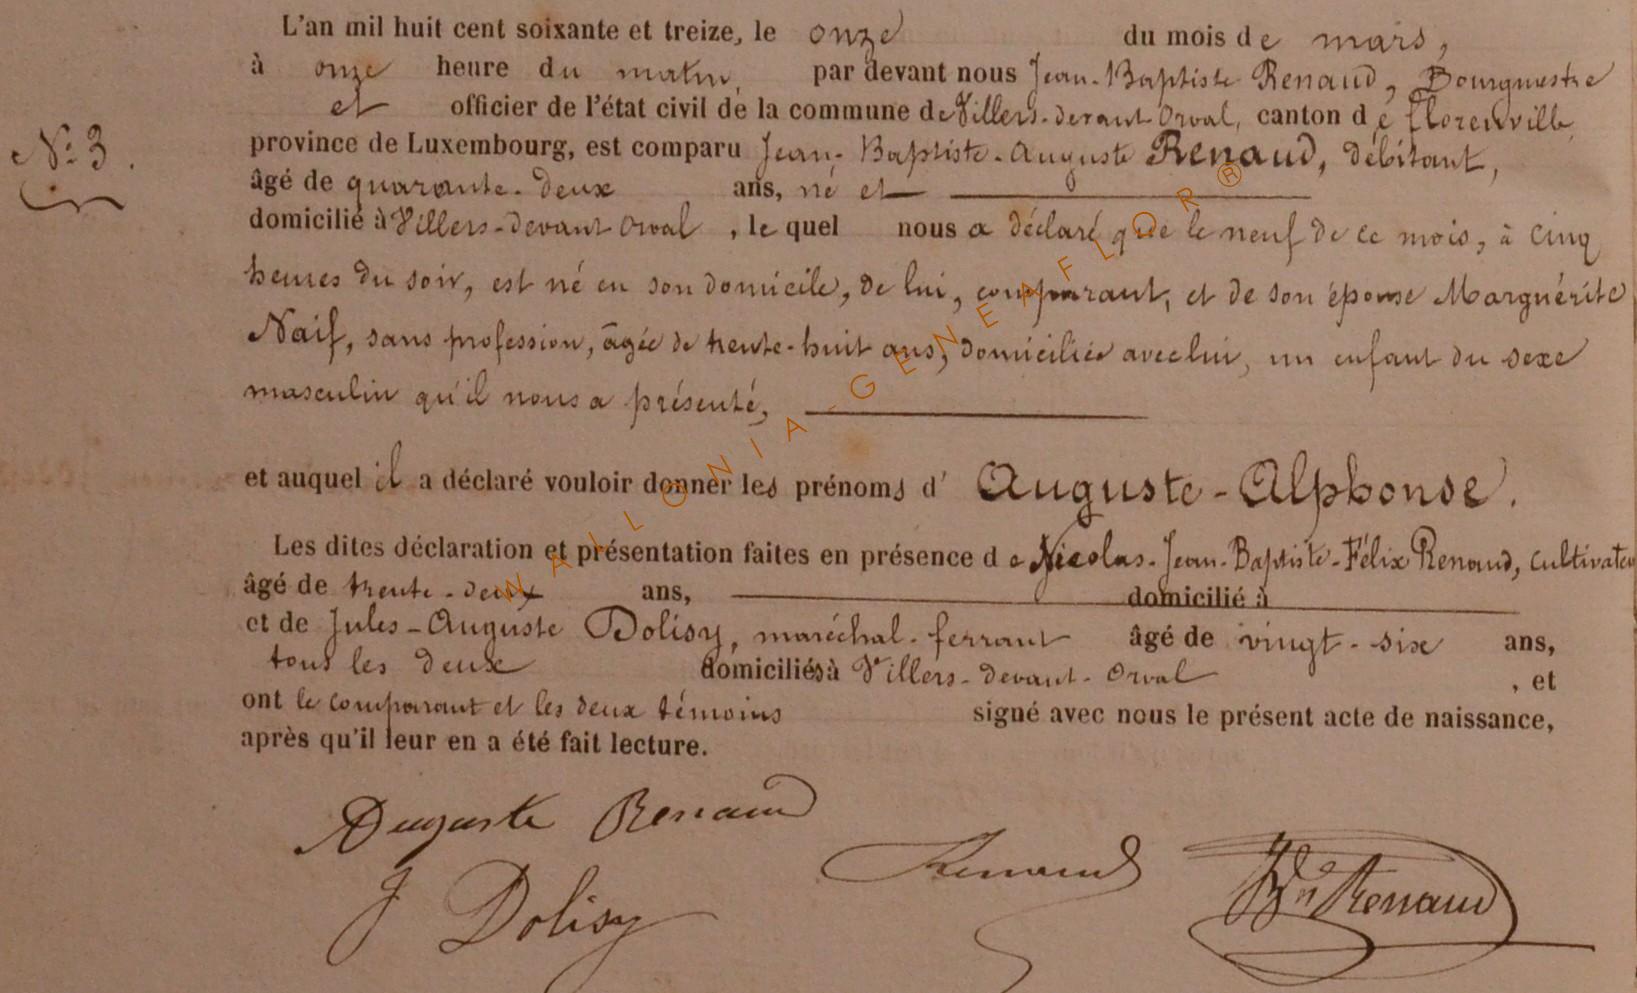 L'an mil huit cent soixante et treize, le onze du mois de mars,
à onze heure du matin, par devant nous Jean-Baptiste Renaud, Bourgmestre
et officier de l'état civil de la commune de Villers-devant Orval, canton de Florenville,
N° 3.
province de Luxembourg, est comparu Jean-Baptiste-Auguste Renaud, débitant,
âgé de quarante-deux ans, né et
domicilié à Villers-devant Orval, lequel nous a déclaré que le neuf de ce mois, à cinq
heures du soir, est né en son domicile, de lui, comparant, et de son épouse Marguérite
Naif, sans profession, âgée de trente-huit ans, domiciliée avec lui, un enfant du sexe
masculin qu'il nous a présenté,
et auquel il a déclaré vouloir donner les prénoms d'Auguste-Alphonse.
Les dites déclaration et présentation faites en présence de Nicolas-Jean-Baptiste-Félix Renaud, cultivateur
âgé de trente-deux ans, domicilié à
et de Jules-Auguste Dolisy, maréchal-ferrant âgé de vingt-six ans,
tous les deux domiciliés à Villers-devant-Orval, et
ont le comparant et les deux témoins signé avec nous le présent acte de naissance,
après qu'il leur en a été fait lecture.
Auguste Renaud
Renaud
JBte Renaud
J Dolisy
WALLONIA-GENEAFLOR®